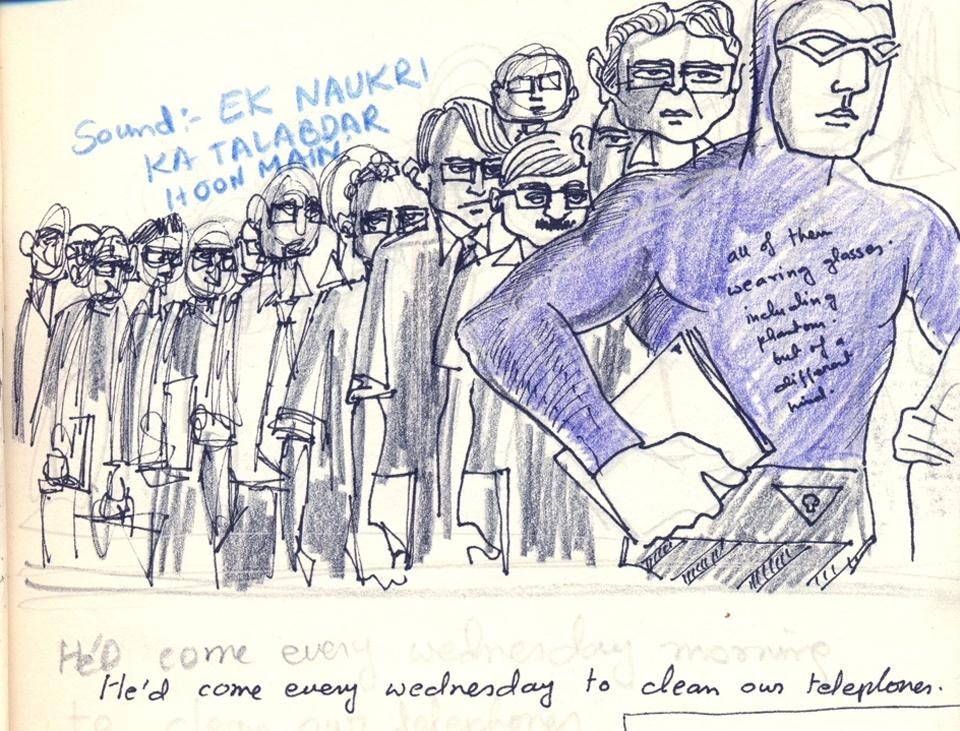 Sound:- EK NAUKRI
KA TALABDAR
HOON MAIN
all of them
wearing glasses.
including
phantom.
but of a
different
kind.
He'd come every wednesday morning
He'd come every wednesday to clean our telephones.
to clean our telephones